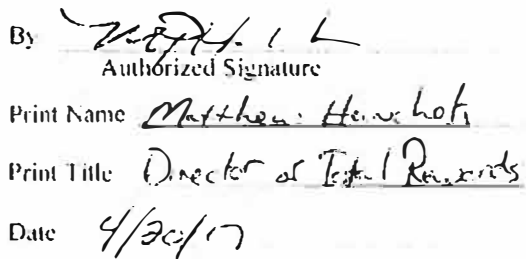 By
Authorized Signature
Print Name Matthew
Print Title Director of Total Rewards
Date 4/20/17